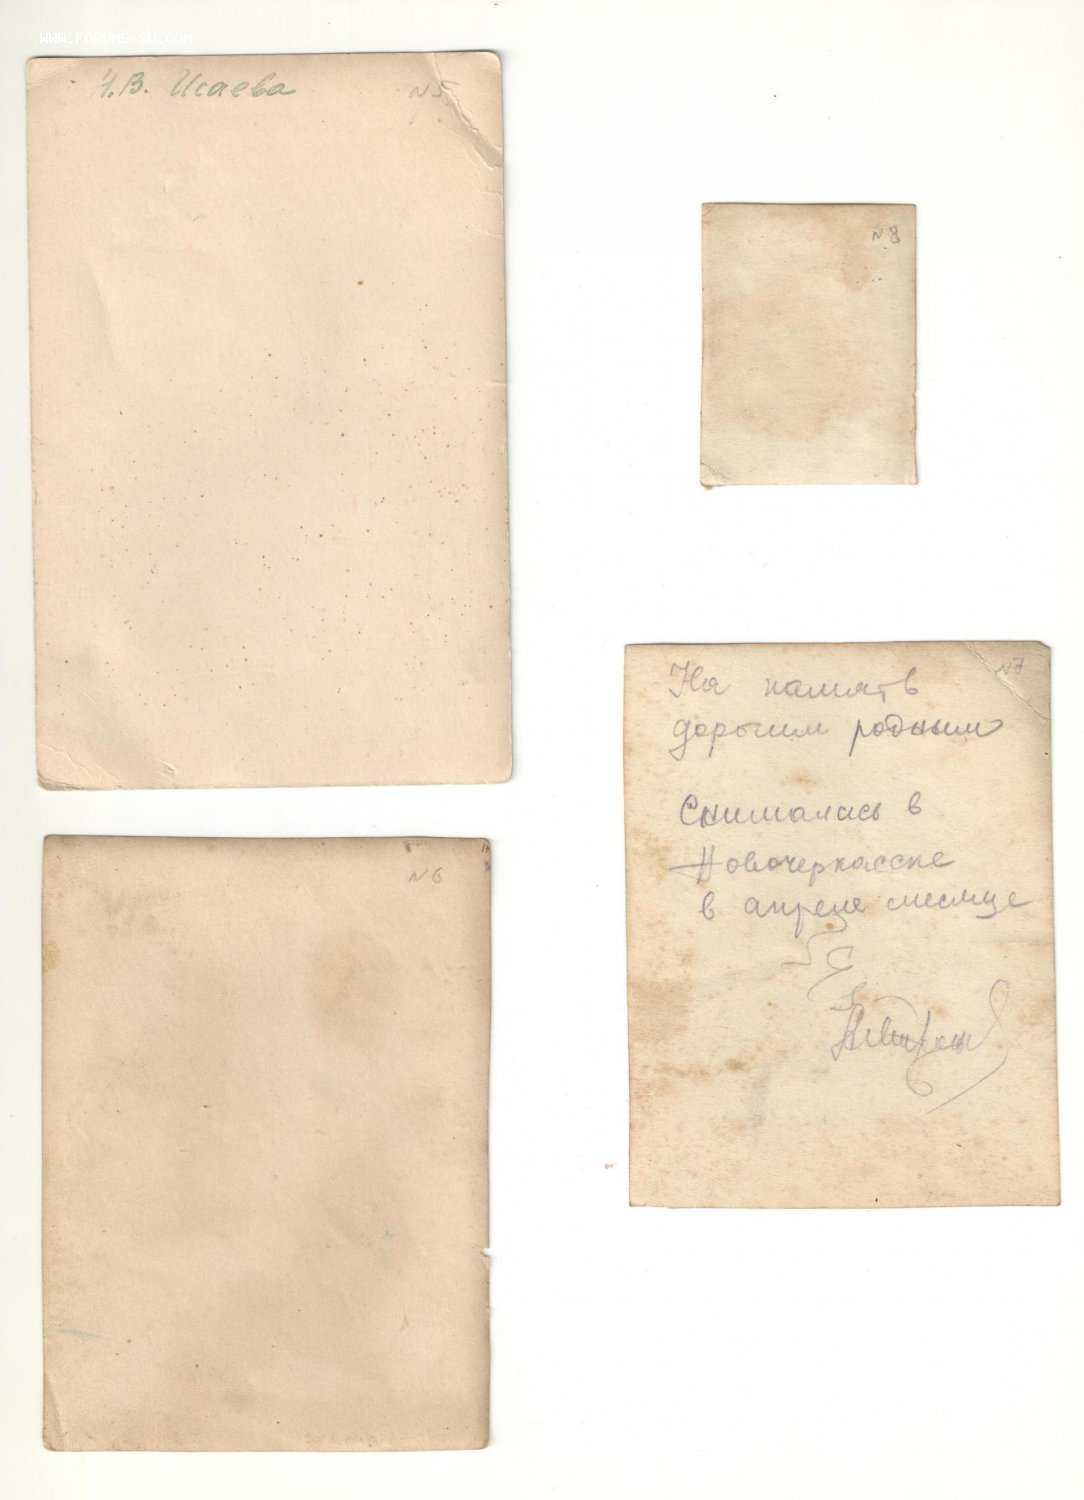 WWW.FORUMS-SU.COM
Ч.В. Исаева
N5
N8
N7
На память
дорогим родным
Снималась в
Новочеркасске
в апреле месяце
N6